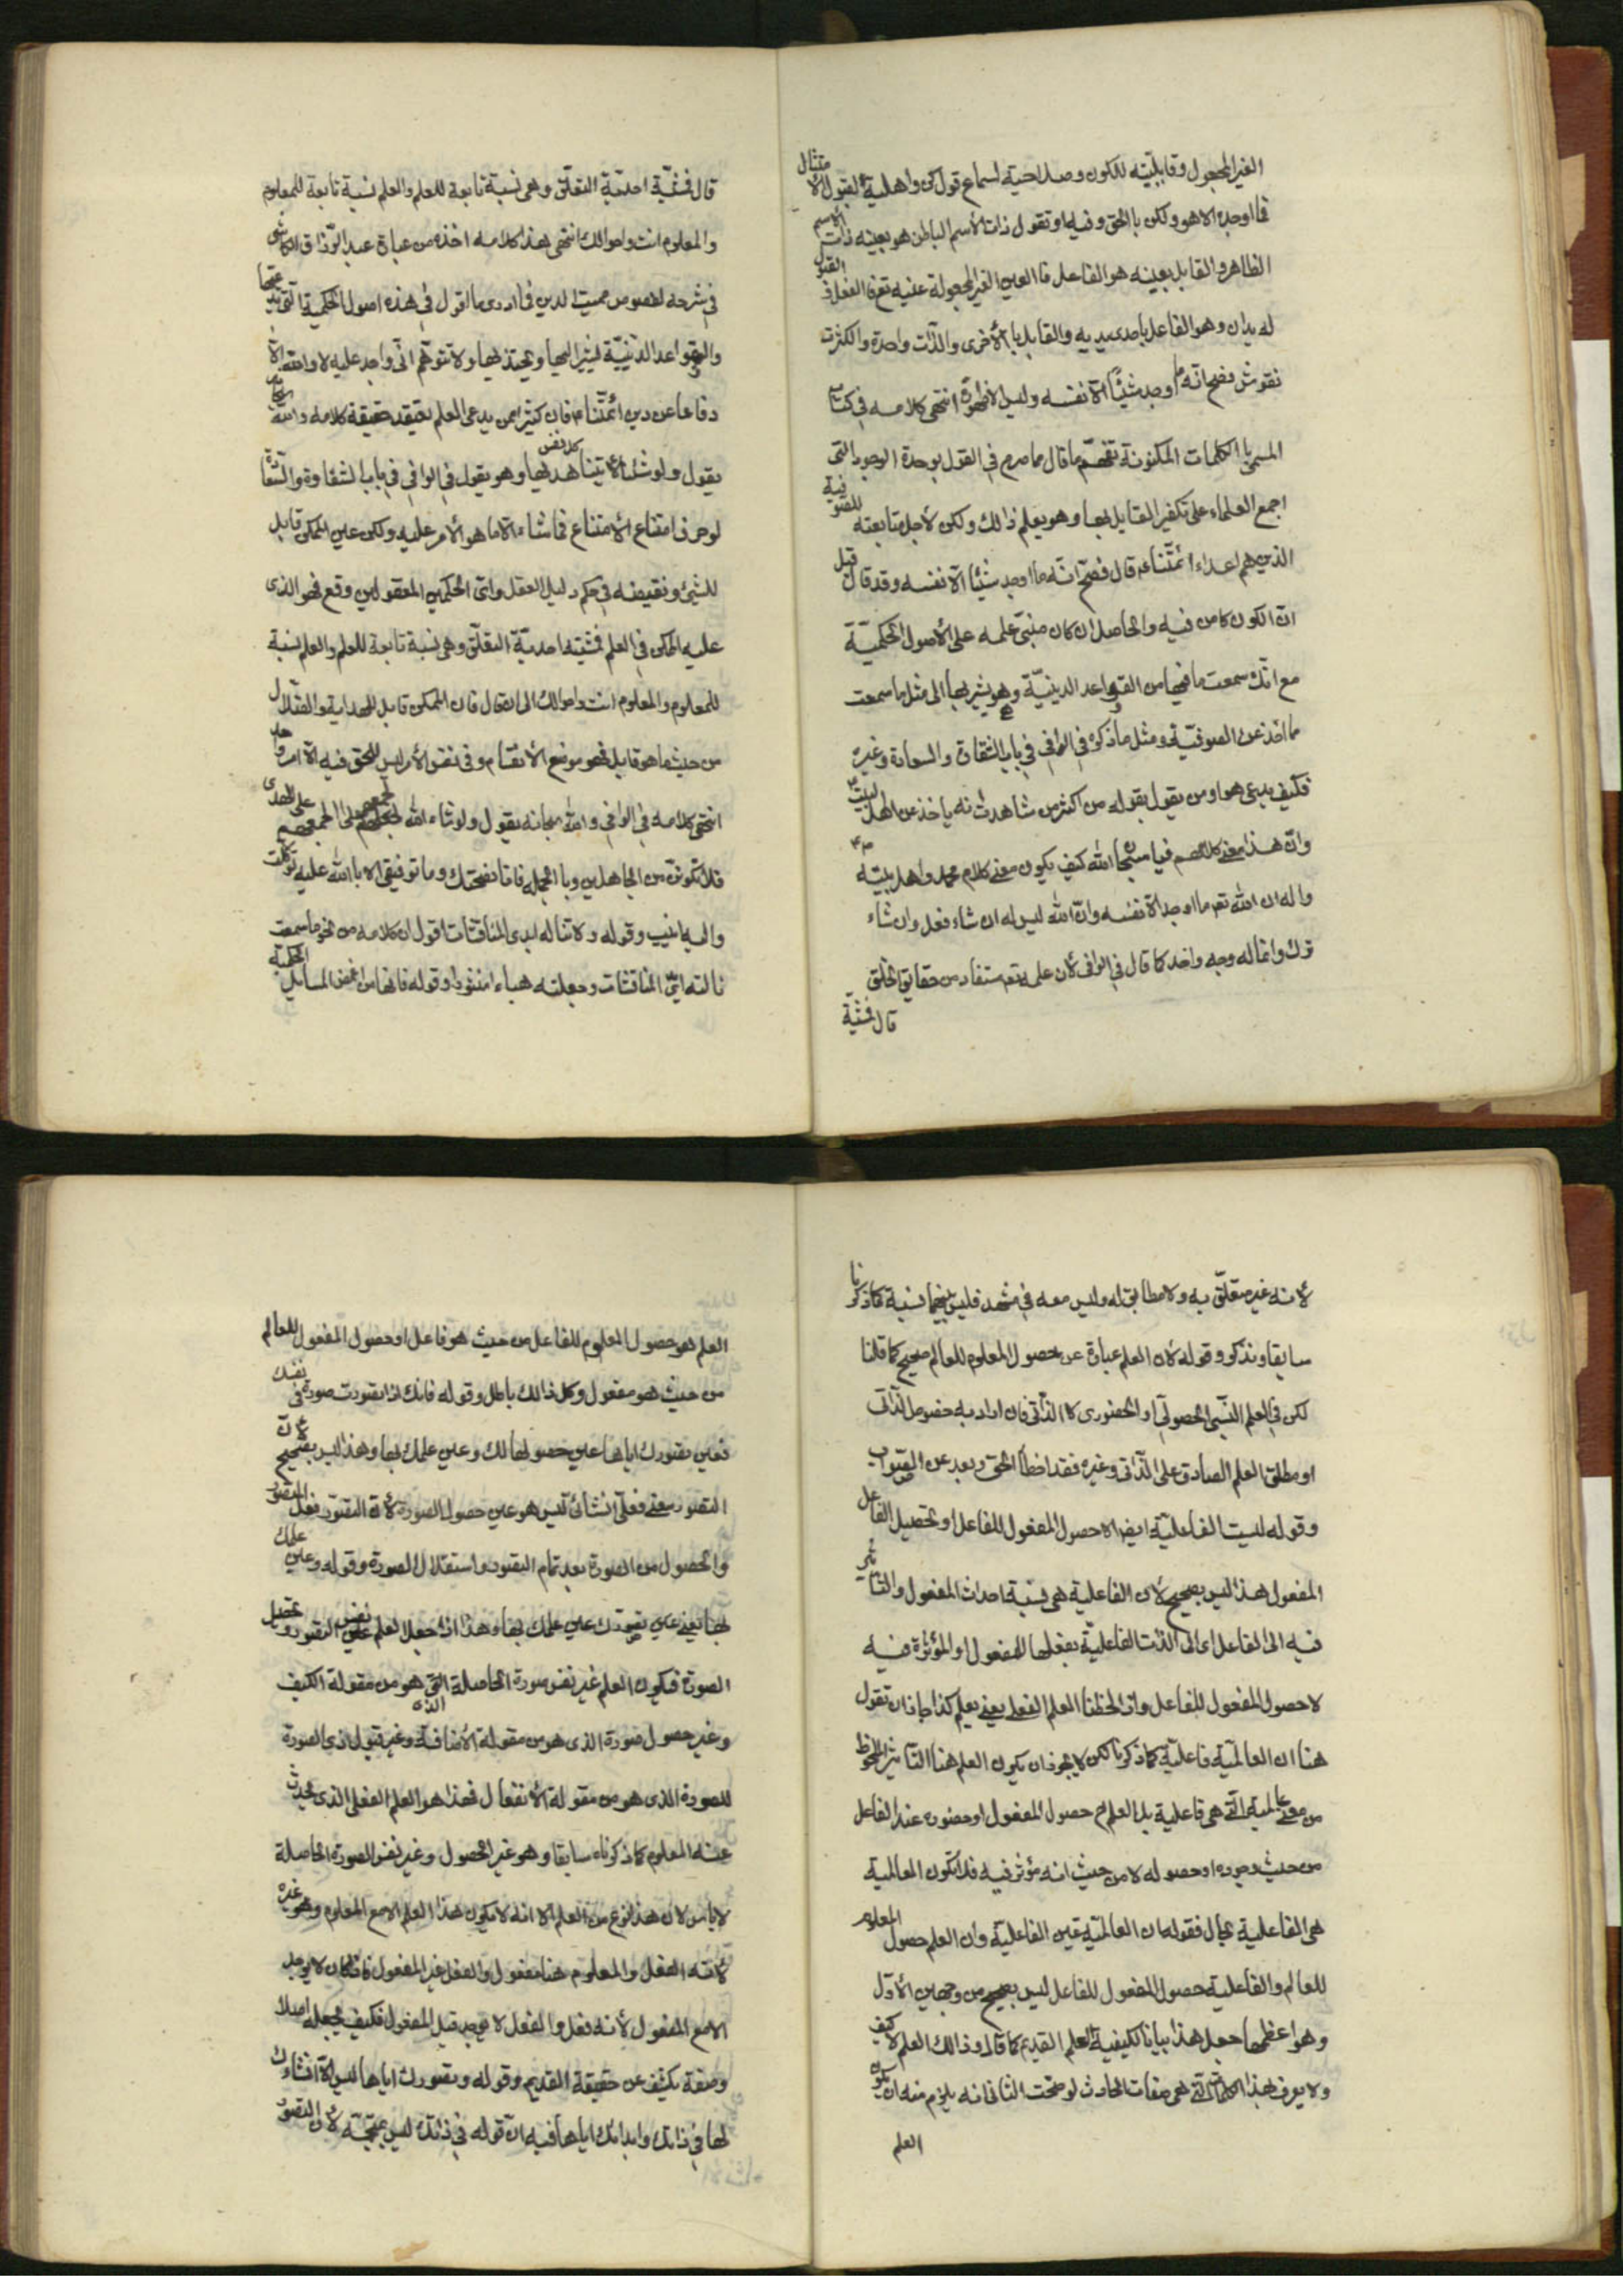 الغير المجعول وقابليّته للكون وصلاحيته لسماع قول كن واهليّة لقبول الامتثال
فما اوجده الا هو ولكن بالحق وفيه او تقول ذات الأسم الباطن هو بعينه ذات الأسم
الظاهر والقابل بعينه هو الفاعل فالعين الغير المجعولة عينه تعم الفعل والقبول
له يدان وهو الفاعل باحدى يديه والقابل بالأخرى والذّات واحدة والكثرت
نقوش فصح انّه ما اوجد شيئًا الّا نفسه وليس الا ظهوره انتهى كلامه في كتابه
المسمّى بالكلمات المكنونة تفهّم ما قال مما صرح في القول بوحدة الوجود التى
اجمع العلماء على تكفير القايل بها وهو يعلم ذالك ولكن لأجل متابعته للصوفية
الذين هم اعداء أئمّتناء قال فصح انّه ما اوجد شيئا الّا نفسه وقد قال قبل
انّ الكون كامن فيه والحاصل ان كان مبنى علمه على الأصول الحكميّة
مع انّك سمعت ما فيها من القواعد الدينيّة وهو يشير بها الى مثل ما سمعت
مما اخذ عن الصوفيّة ومثل ما ذكره في الوافي في باب الشقاوة والسعادة وغيره
فكيف يدعى هو او من يقول بقوله من اكثر من شاهدت انه ياخذ عن اهل البيت
وانّ هذا معنى كلامهم فيا سبحان الله كيف يكون معنى كلام محمد واهل بيته
واله ان الله تعم ما اوجد الا نفسه وانّ الله ليس له ان شاء فعل وان شاء
ترك وانما له وجه واحد كما قال في الوافي لأن علمه تعم مستفاد من حقايق الخلق
قال فمشيّة
قال فمشيّة احديّة التعلّق وهى نسبة تابعة للعلم والعلم نسبة تابعة للمعلوم
والمعلوم انت واحوالك انتهى هذا كلامه اخذه من عبارة عبد الرّزاق الكاشى
في شرحه لفصوص مميت الدين فما ادرى ما اقول في هذه اصول الحكمية الّتى يدعيها
والقواعد الدّينيّة ليشير اليها ويحتذيها ولا تتوهّم انّى واجد عليه لا والله الّا
دفاعا عن دين أئمّتنا ع فان كثيرا ممن يدعى العلم يعتقد حقيقة كلامه والله سبحانه
يقول ولو شئنا لأتينا كل نفس هديها وهو يقول في الوافي في باب الشقاوة والسعادة
لو حرف امتناع الأمتناع فما شاء الّا ما هو الأمر عليه ولكن عين الممكن قابل
للشيئ ونقيضه في حكم دليل العقل واىّ الحكمين المعقولين وقع فهو الذى
عليه الممكن في العلم فمشيّته احديّة التعلّق وهى نسبة تابعة للعلم والعلم نسبة
للمعلوم والمعلوم انت واحوالك الى ان قال فان الممكن قابل للهداية والضّلال
من حيث ما هو قابل فهو موضع الأنقسام وفي نفس الأمر ليس للحق فيه الّا امر واحد
انتهى كلامه في الوافي والله سبحانه يقول ولو شاء الله لجمعهم على الهدى
فلا تكوننّ من الجاهلين وبالجمله فانا نصحتك وما توفيقى الا بالله عليه توكّلت
واليه انيب وقوله ولا تناله ايدى المناقشات اقول ان كلامه من نحو ما سمعت
نالته ايدى المناقشات وجعلته هباء منثورا وقوله فانها من اغمض المسايل الحكمية
لأنه غير متعلّق به ولا مطابق له وليس معه في مشهد فليس بينهما نسبة كما ذكرنا
سابقا ونذكر وقوله لأن العلم عبارة عن حصول المعلوم للعالم صحيح كما قلنا
لكن في العلم النّسبى الحصولّى او الحضورى لا الذّاتى فان اراد به خصوص الذّاتى
او مطلق العلم الصادق على الذّاتى وغيره فقد اخطأ الحق وبعد عن الصّواب
وقوله ليست الفاعليّة ايضا الا حصول المفعول للفاعل او تحصيل الفاعل
المفعول هذا ليس بصحيح لأن الفاعلية هى نسبة احداث المفعول والتّأثير
فيه الى الفاعل اى الى الذّات الفاعليّة بفعلها للمفعول او المؤثرة فيه
لا حصول المفعول للفاعل واذا لحظنا العلم الفعلى يعنى يعلم كذا جاز ان تقول
هنا ان العالميّة فاعليّة كما ذكرنا لكن لا يجوز ان يكون العلم هنا التأثير الملحوظ
من معنى عالمية التى هى فاعلية بل العلم ح حصول المفعول او حضوره عند الفاعل
من حيث وجوده او حصوله لا من حيث انه مؤثر فيه فلا تكون العالمية
هى الفاعلية بحال فقوله ان العالميّة عين الفاعليّة وان العلم حصول المعلوم
للعالم والفاعلية حصول المفعول للفاعل ليس بصحيح من وجهين الأوّل
وهو اعظمها جعل هذا بيانا لكيفية العلم القديم كما قال وذالك العلم لا كيف
ولا يعرف بهذا الكلمات التى هى صفات الحادث لو صحّت الثانى انه يلزم منه ان يكون
العلم
العلم هو حصول المعلوم للفاعل من حيث هو فاعل او حصول المفعول للعالم
من حيث هو مفعول وكل ذالك باطل وقوله فانك اذا تصّورت صورة في نفسك
فعين تصورك اياها عين حصولها لك وعين علمك بها وهذا ليس بصحيح لأنّ
التصّور معنى فعلّى انشائى ليس هو عين حصول الصورة لأن التصّور فعل المتصوّر
والحصول من الصورة بعد تمام التصّور واستقلال الصورة وقوله وعين علمك
بها يعنى عين تصوّرك عين علمك بها وهذا اذا جعل العلم نفس التصّور وتحصيل
الصورة فيكون العلم غير نفس صورة الحاصلة التى هو من مقولة الكيف
وغير حصول صورة الذى هو من مقولة الأضافة وغير قبول الذى الصورة
للصورة الذى هو من مقولة الأنفعال فهذا هو العلم الفعلى الذى يحدث
عنه المعلوم كما ذكرناه سابقا وهو غير الحصول وغير نفس الصورة الحاصلة
لا بأس لأن هذا نوع من العلم الا انه لا يكون هذا العلم الا مع المعلوم وهو غيره
لأنّه الفعل والمعلوم هنا مفعول والفعل غير المفعول فاذا كان لا يوجد
الا مع المفعول لأنه فعل والفعل لا يوجد قبل المفعول فكيف يجعله اصلا
وصفة يكشف عن حقيقة القديم وقوله وتصورك اياها ليس الّا انشاءك
لها في ذاتك وابدائك اياها فيه انّ قوله في ذاتك ليس بمتّجه لأن التصوّر